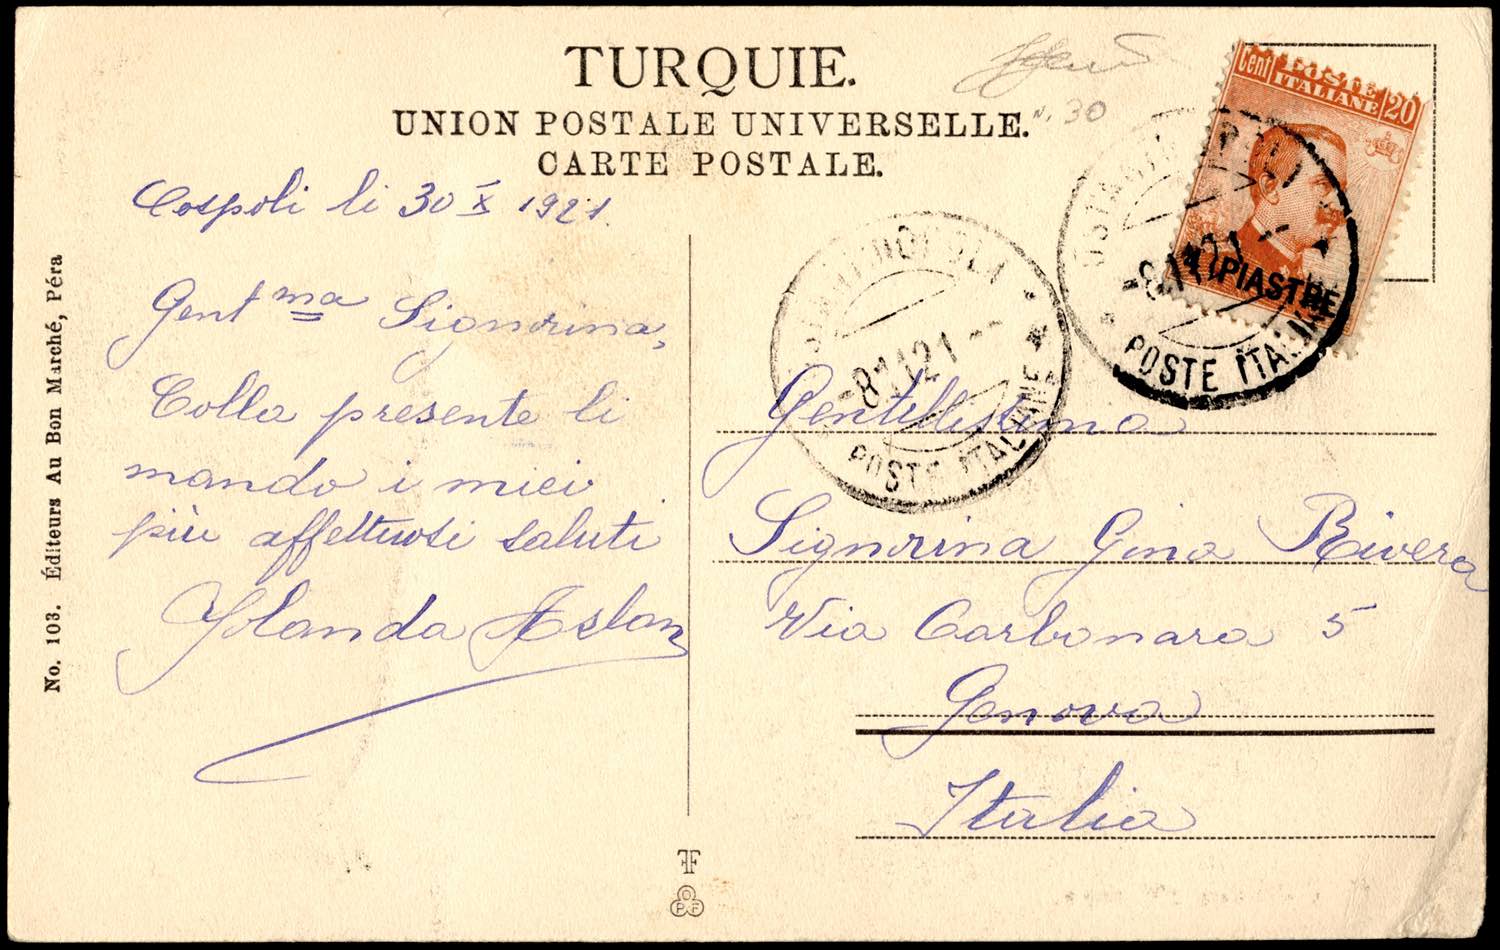 TURQUIE.
UNION POSTALE UNIVERSELLE.
CARTE POSTALE.
N. 30
Cospoli li 30 X 1921.
Gent ma Signorina,
Colla presente li
mando i miei
più affettuosi saluti
Yolanda Aslan
No. 103. Éditeurs Au Bon Marché, Péra
Cent POSTE ITALIANE 20
PIASTRE
POSTE ITALIANE
-8 21--
POSTE ITALIANE
Gentilissima
Signorina Gina Rivera
Via Carbonara 5
Genova
Italia
FF
OPF